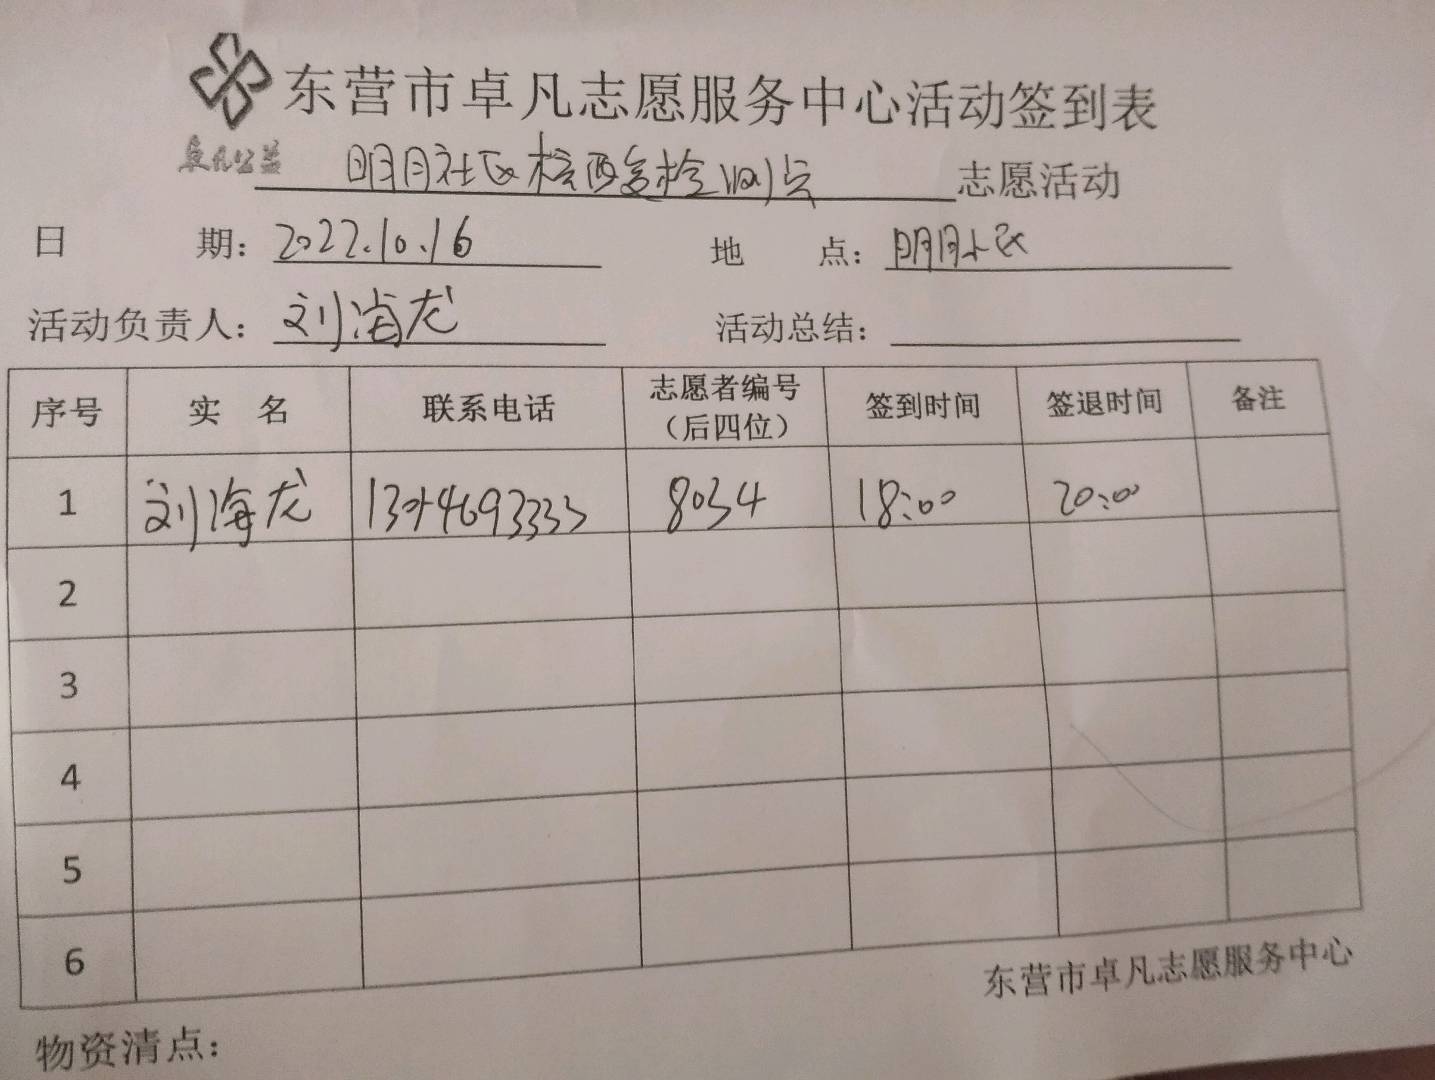 东营市卓凡志愿服务中心活动签到表
卓凡公益 明月社区核酸检测点 志愿活动
日 期：2022.10.16 地 点：明月小区
活动负责人：刘海龙 活动总结：
序号 实 名 联系电话 志愿者编号（后四位） 签到时间 签退时间 备注
1 刘海龙 8034 18:00 20:00
2
3
4
5
6
东营市卓凡志愿服务中心
物资清点：